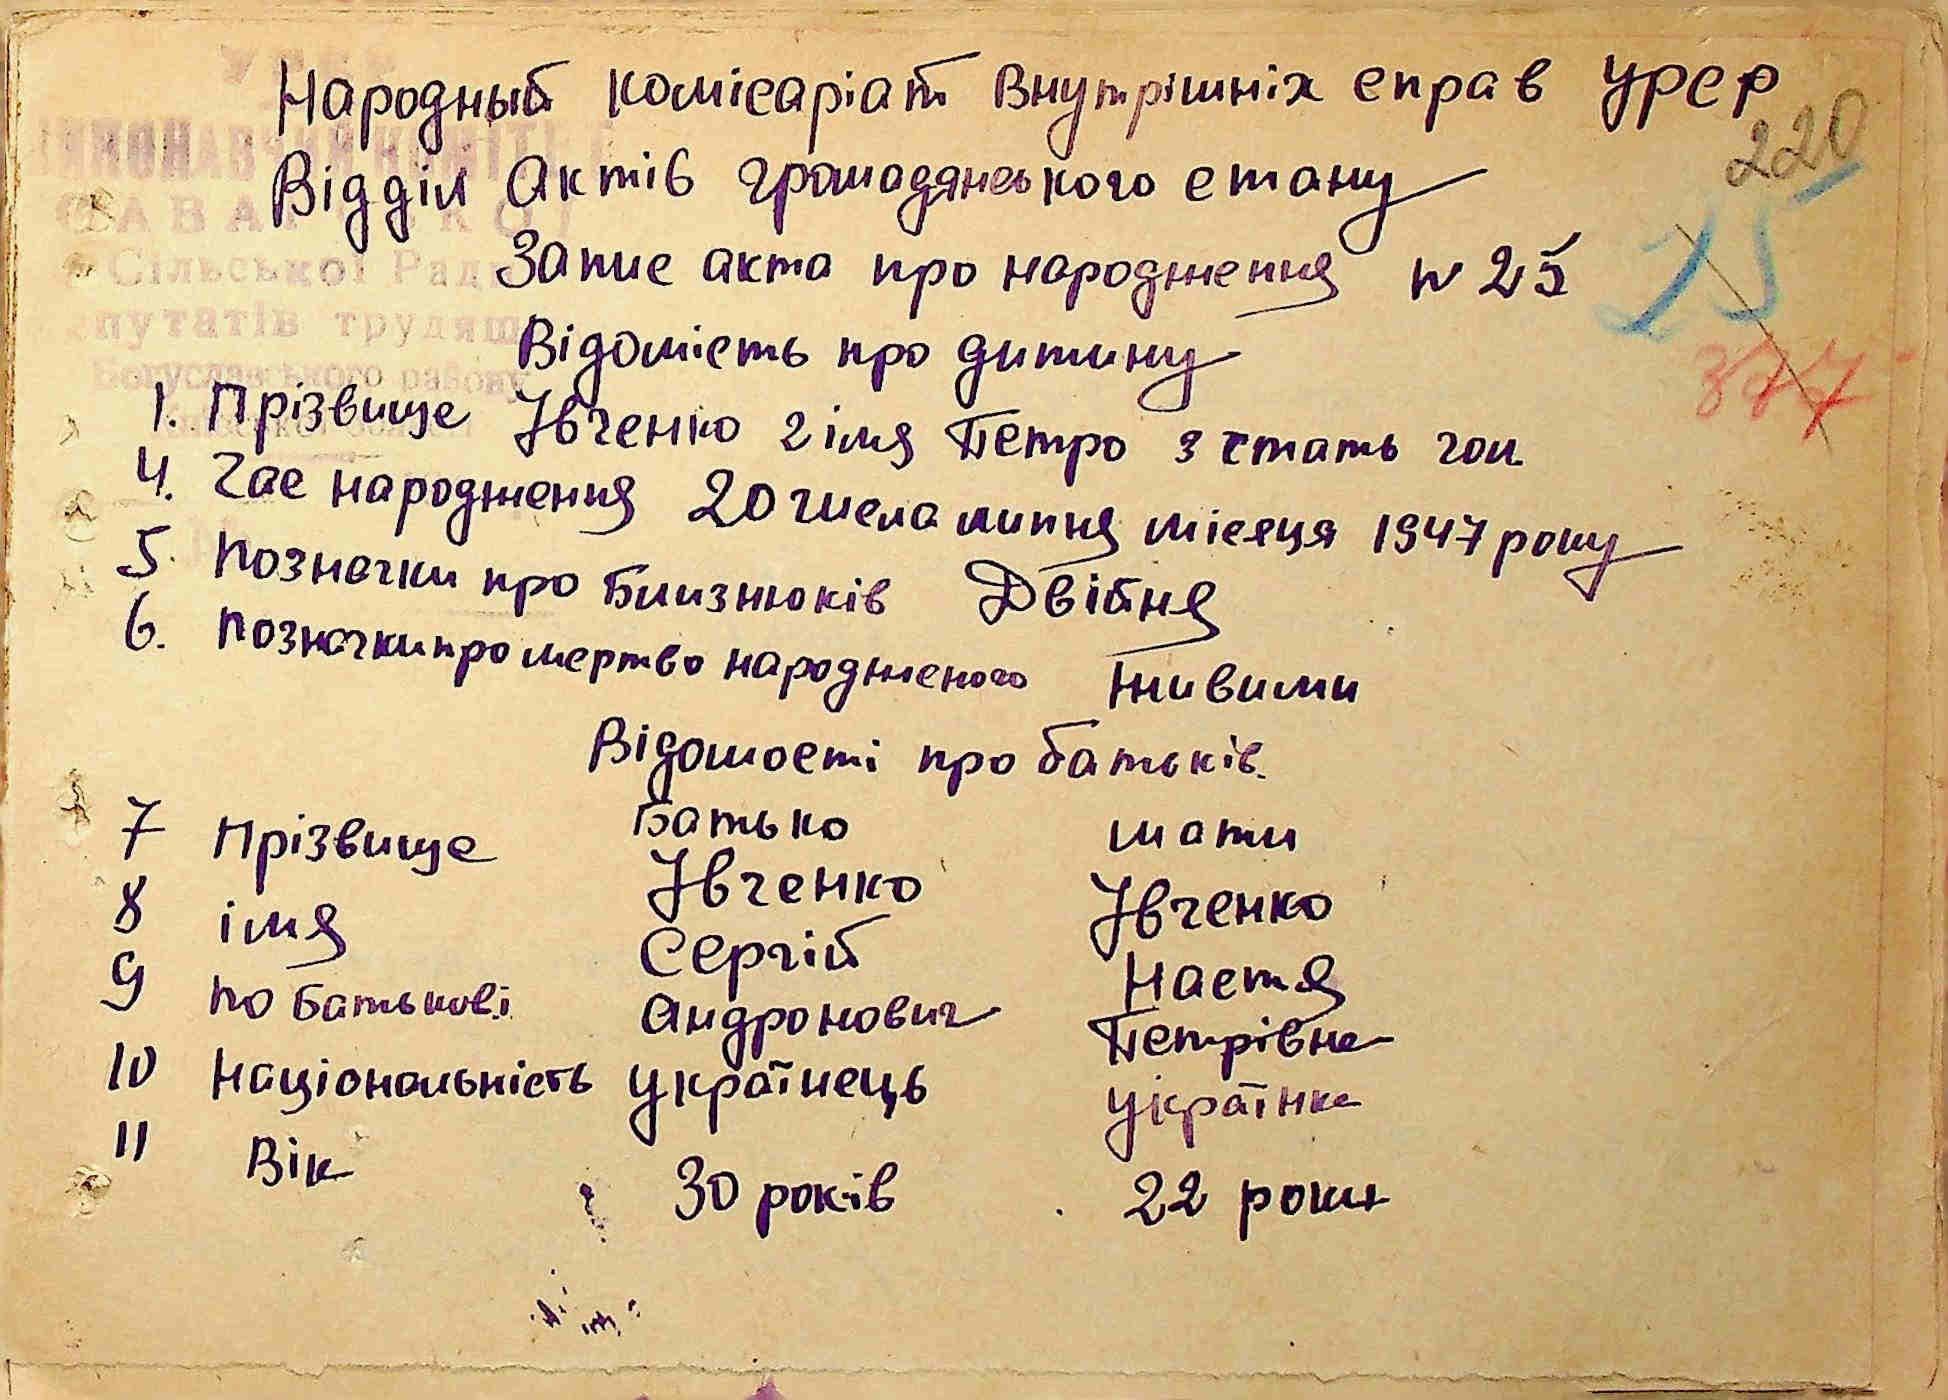 Народный комісаріат внутрішніх справ УРСР
220
Відділ Актів громадянського стану
Запис акта про народження N 25
25
377
Відомість про дитину
1. Прізвище Івченко 2 імя Петро 3 стать чол
4. Час народження 20 числа липня місяця 1947 року
5. Позначки про близнюків Двійня
6. Позначки про мертво народженого живими
Відомості про батьків.
Батько мати
7 Прізвище Івченко Івченко
8 імя Сергій Настя
9 по батькові Андронович Петрівна
10 Національність українець українка
11 Вік 30 років 22 роки
УРСР
САВАРСЬКОЇ
Сільської Ради
путатів трудящ
Богуславського району